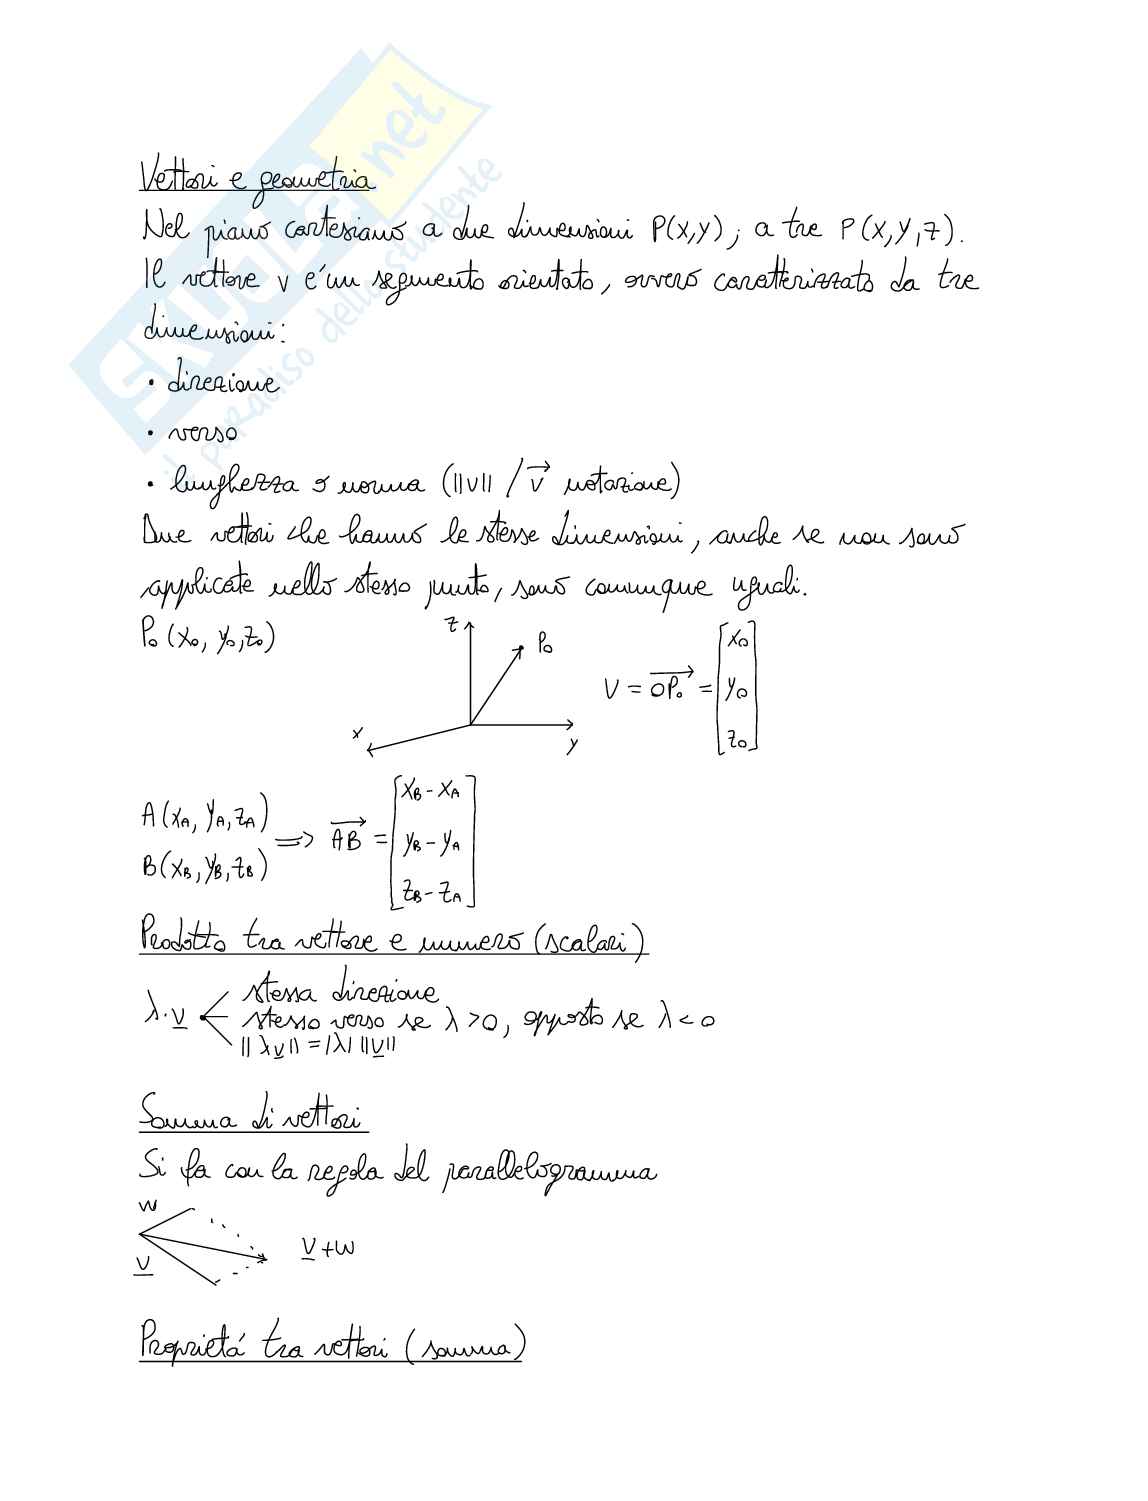 SKUOLA.net
il paradiso dello studente
Vettori e geometria
Nel piano cartesiano a due dimensioni P(x,y); a tre P(x,y,z).
Il vettore v e' un segmento orientato, ovvero caratterizzato da tre
dimensioni:
• direzione
• verso
• lunghezza o norma (||v|| / v⃗ notazione)
Due vettori che hanno le stesse dimensioni, anche se non sono
applicate nello stesso punto, sono comunque uguali.
P₀(x₀, y₀, z₀)
z
P₀
x
y
V = OP₀⃗ = [x₀
y₀
z₀]
A(x_A, y_A, z_A)
B(x_B, y_B, z_B)
=> AB⃗ = [x_B - x_A
y_B - y_A
z_B - z_A]
Prodotto tra vettore e numero (scalari)
λ·v
stessa direzione
stesso verso se λ>0, opposto se λ<0
||λv|| = |λ| ||v||
Somma di vettori
Si fa con la regola del parallelogramma
w
v
v+w
Proprietá tra vettori (somma)